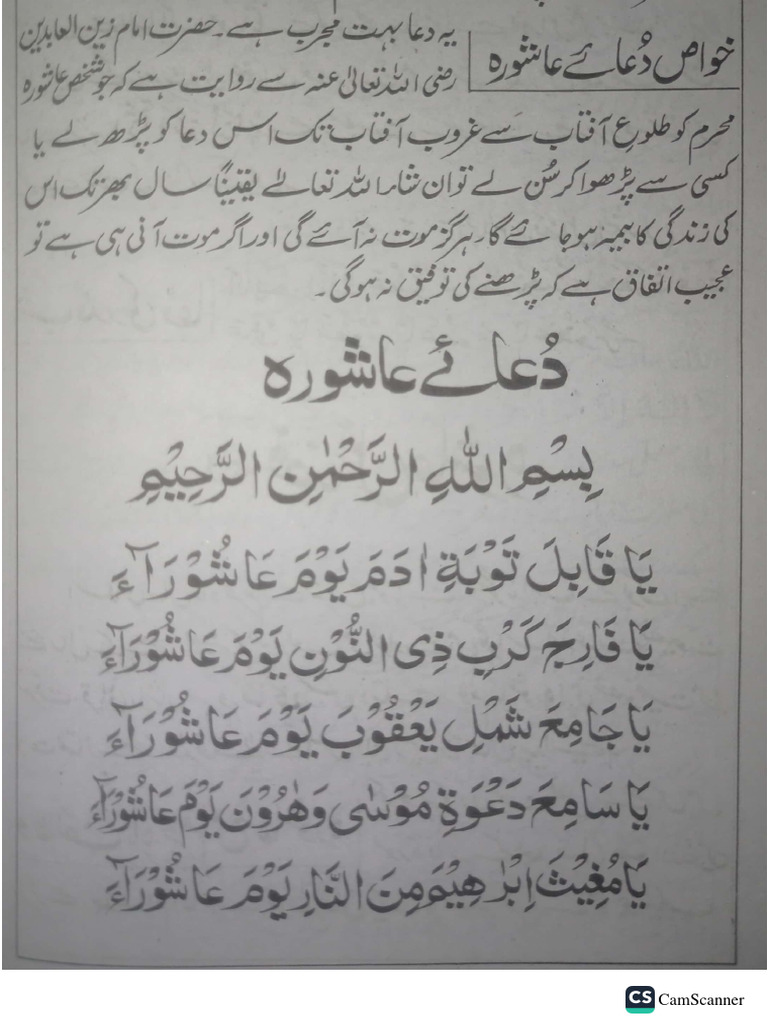 خواص دُعائے عاشورہ
یہ دعا بہت مجرب ہے۔ حضرت امام زین العابدین
رضی اللہ تعالیٰ عنہ سے روایت ہے کہ جو شخص عاشورہ
محرم کو طلوع آفتاب سے غروب آفتاب تک اس دعا کو پڑھ لے یا
کسی سے پڑھوا کر سُن لے تو ان شاء اللہ تعالےٰ یقیناً سال بھر تک اس
کی زندگی کا بیمہ ہو جائے گا۔ ہرگز موت نہ آئے گی اور اگر موت آنی ہی ہے تو
عجیب اتفاق ہے کہ پڑھنے کی توفیق نہ ہو گی۔
دُعائے عاشورہ
بِسْمِ اللّٰهِ الرَّحْمٰنِ الرَّحِيْمِ
يَا قَابِلَ تَوْبَةِ اٰدَمَ يَوْمَ عَاشُوْرَآءَ
يَا فَارِجَ كَرْبِ ذِى النُّوْنِ يَوْمَ عَاشُوْرَآءَ
يَا جَامِعَ شَمْلِ يَعْقُوْبَ يَوْمَ عَاشُوْرَآءَ
يَا سَامِعَ دَعْوَةِ مُوْسٰى وَهٰرُوْنَ يَوْمَ عَاشُوْرَآءَ
يَا مُغِيْثَ اِبْرٰهِيْمَ مِنَ النَّارِ يَوْمَ عَاشُوْرَآءَ
CS CamScanner